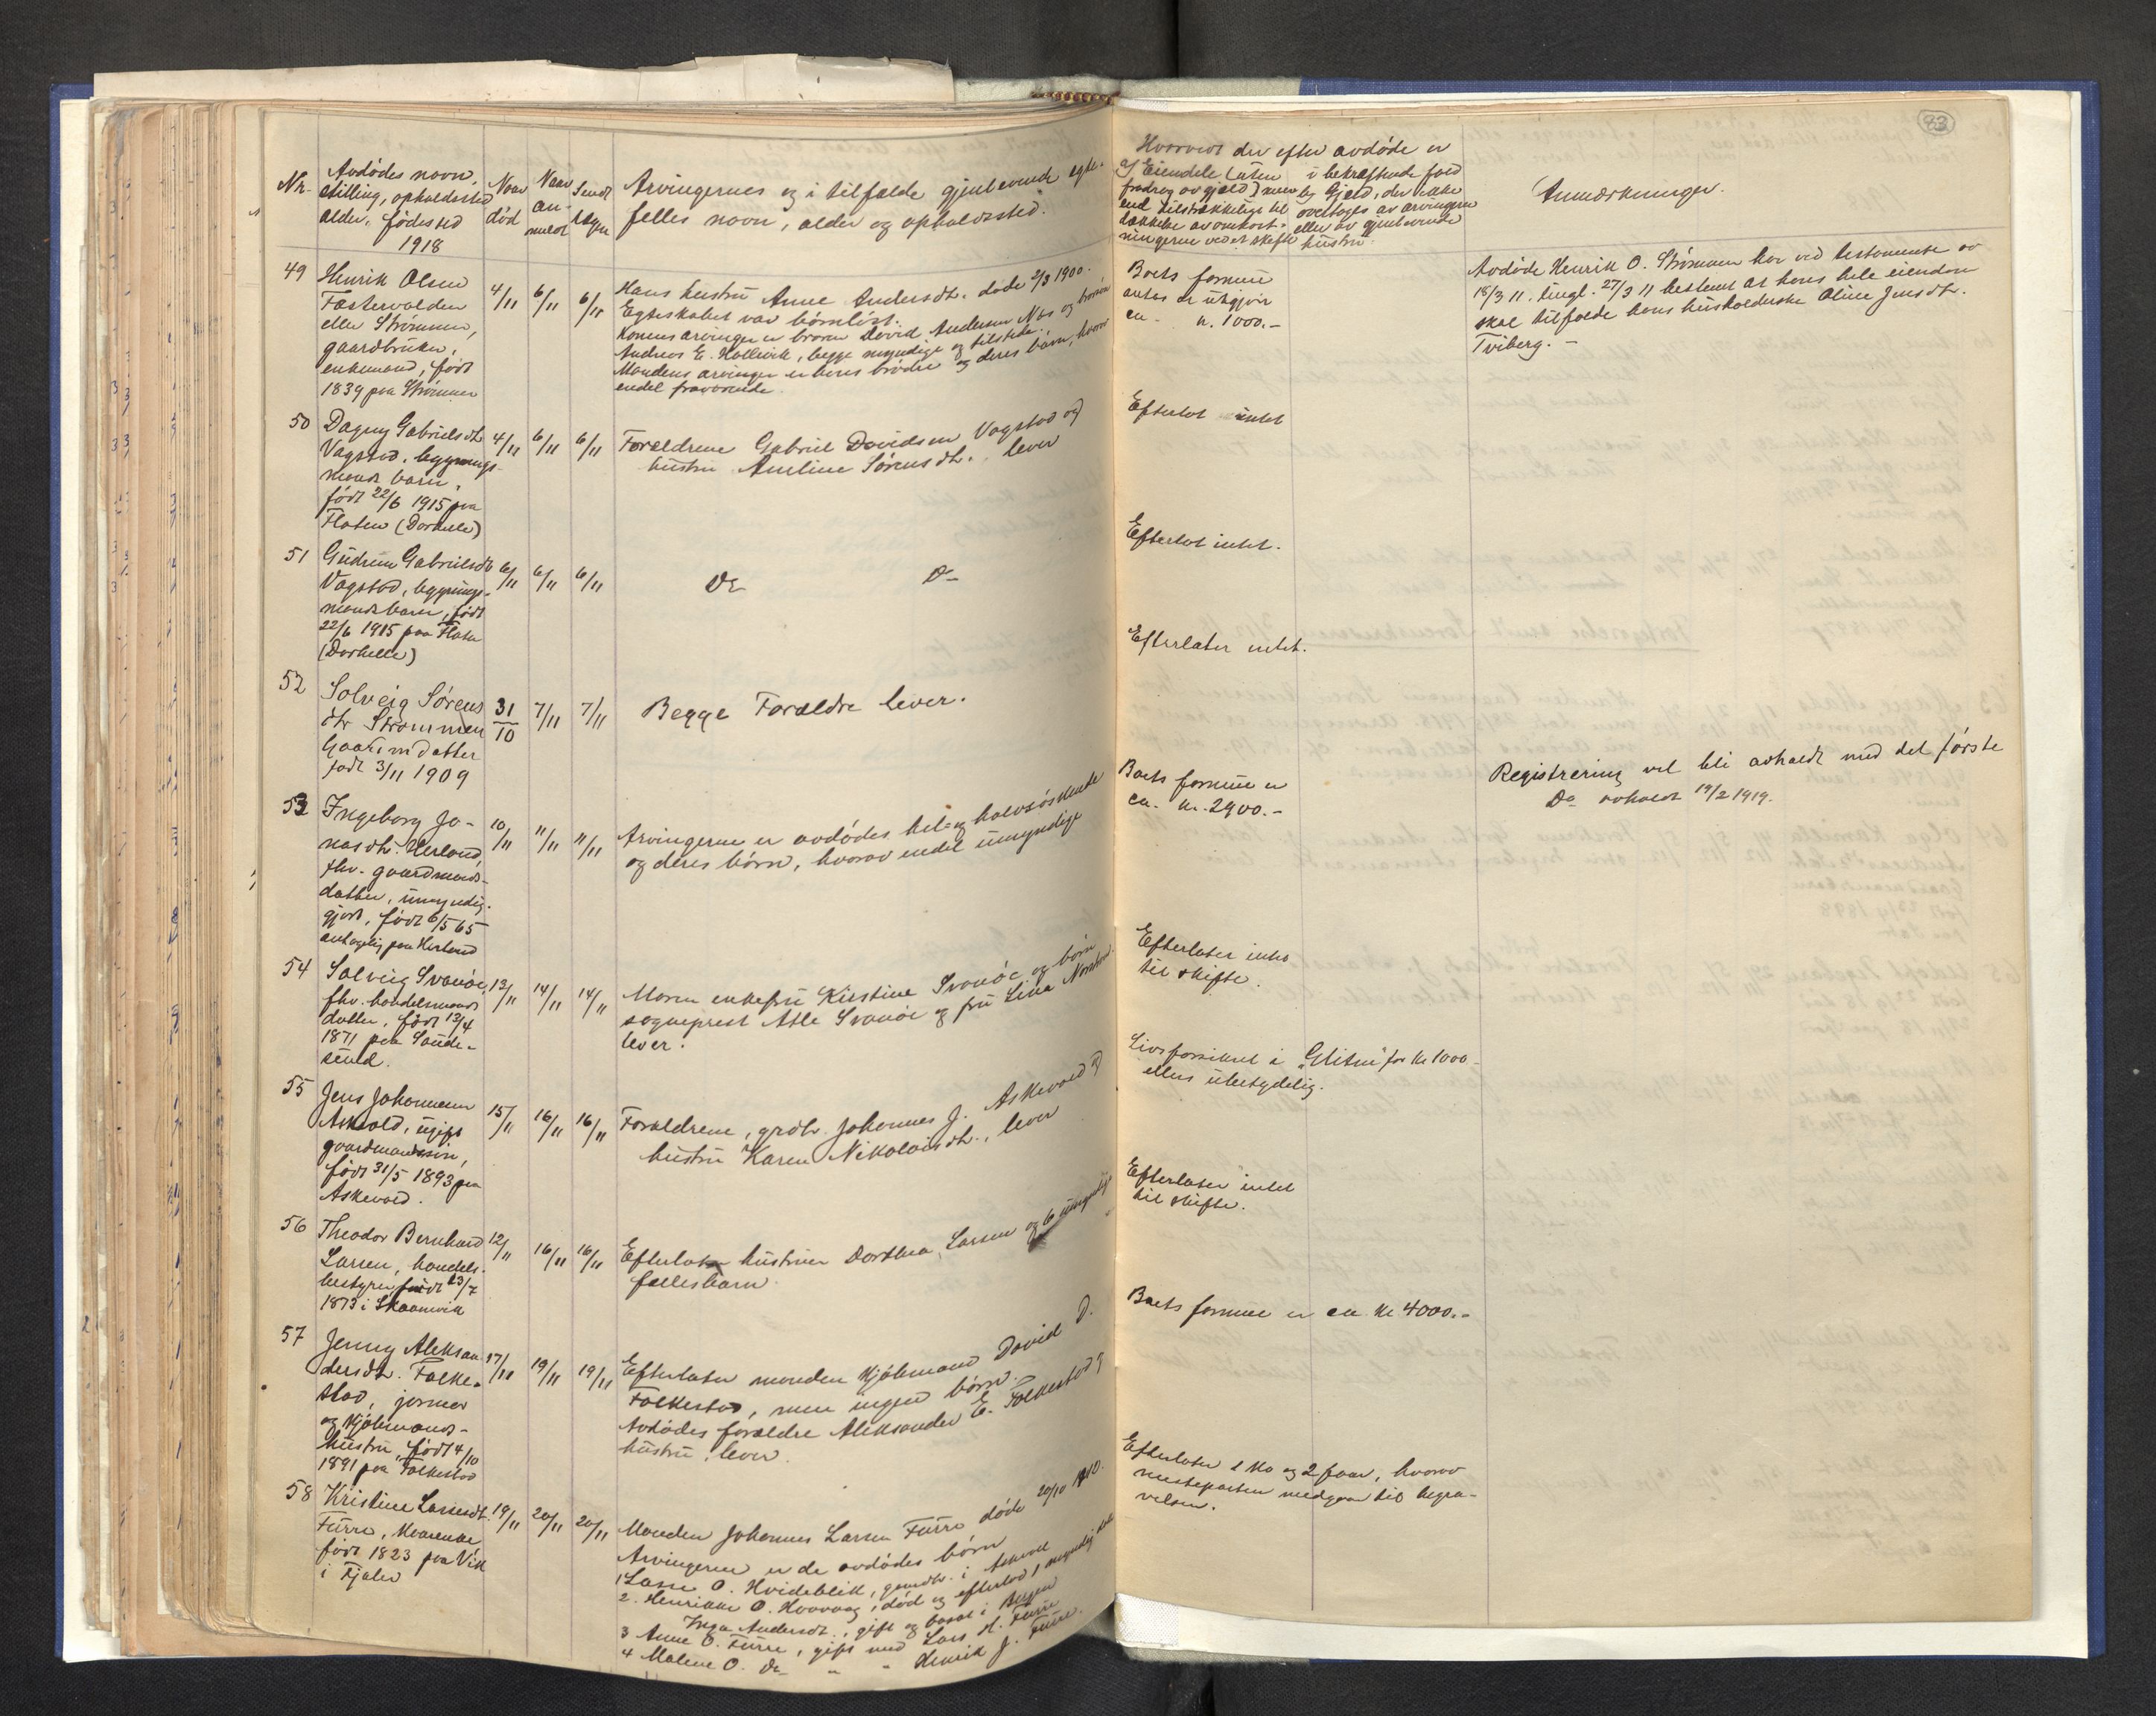 83
Nr.
Avdødes navn,
stilling, opholdssted
alder, fødested
1918
Naar
død
Naar
an-
meldt
Sendt
Arvingernes og i tilfælde gjenlevende egte-
felles navn, alder og opholdssted.
Hvorvidt der efter avdøde er
a) Eiendele (uten
fradrag av gjæld) mere
end tilstrækkelige til
dækkelse av omkost-
ningerne ved et skifte
i bekræftende fald
b) Gjæld, der ikke
overtages av arvingerne
eller av gjenlevende
hustru.
Anmærkninger.
49
Henrik Olsen
Fastervolden
eller Strømmen,
gaardbruker,
enkemand, født
1839 paa Strømmen
4/11
6/11
6/11
Hans hustru Anne Andersdtr. døde 2/3 1900.
Egteskabet var børnløst.
Konens arvinger er broren David Andersen Nes og
Andreas E. Hollevik, begge myndige og tilstede.
Mandens arvinger er hans brødre og deres børn, hvorav
endel fraværende.
Boets formue
antas at utgjøre
ca. kr. 1000.-
Avdøde Henrik O. Strømmen har ved testamente av
18/3 11, tingl. 27/3 11 bestemt at hans hele eiendom
skal tilfalde hans husholderske Oline Jensdtr.
Tviberg. -
50
Dagny Gabrielsdtr
Vagstad, bygnings-
mands barn,
født 22/6 1915 paa
Floten (Dorhelle)
4/11
6/11
6/11
Forældrene Gabriel Davidsen Vagstad og
hustru Aneline Sørensdtr. lever
Efterlot intet
51
Gudrun Gabrielsdtr
Vagstad, bygnings-
mands barn, født
22/6 1915 paa Floten
(Dorhelle)
6/11
6/11
6/11
Do
Do
Efterlot intet.
52
Solveig Sørens
dtr Strømmen
Gaardmdatter
født 3/11 1909
31/10
7/11
7/11
Begge Forældre lever.
Efterlater intet.
53
Ingeborg Jo-
nasdtr. Herland,
fhv. gaardmands-
datter, umyndig-
gjort, født 6/5 65
antagelig paa Herland
10/11
11/11
11/11
Arvingerne er avdødes hel- og halvsøskende
og deres børn, hvorav endel umyndige
Boets formue er
ca. kr. 2900.-
Registrering vil bli avholdt med det første
Do avholdt 19/2 1919.
54
Solveig Svanøe,
fhv. handelsmands
datter, født 13/4
1871 paa Sande-
sund.
13/11
14/11
14/11
Moren enkefru Kirstine Svanøe og børn
sogneprest Atle Svanøe og fru Lina
lever.
Efterlater intet
til skifte.
55
Jens Johannessen
Askvold, ugift
gaardmandssøn,
født 31/5 1893 paa
Askevold.
15/11
16/11
16/11
Forældrene, grdbr. Johannes J. Askevold og
hustru Karen Nikolaisdtr., lever
Livsforsikret i "Glitne" for kr 1000
ellers ubetydelig.
56
Theodor Bernhard
Larsen, handels-
bestyrer, født 23/7
1873 i Skaanevik
12/11
16/11
16/11
Efterlater hustruen Dorthea Larsen og 6 umyndige
fællesbarn.
Efterlater intet
til skifte.
57
Jenny Aleksan
dersdtr. Folke-
stad, jormor
og kjøbmands-
hustru, født 4/10
1891 paa Folkestad
17/11
19/11
19/11
Efterlater manden kjøbmand David D.
Folkestad, men ingen børn.
Avdødes forældre Aleksander E. Folkestad og
hustru, lever.
Boets formue er ca. kr. 4000.-
58
Kristine Larsdtr.
Furre, kaarenke
født 1823 paa Vik
i Fjaler
19/11
20/11
20/11
Manden Johannes Larsen Furre døde 20/10 1910.
Arvingerne er de avdødes børn
1 Lasse O. Hvideblik, gaardbr. i Askvoll
2. Henrikke O. Hovvaag, død og efterlod 1 myndig
Inga Andersdtr., gift og bosat i Bergen
3 Anne O. Furre, gift med Lars H. Furre
4 Malene O. do " " Henrik J. Furre.
Efterlater 1 ko og 2 faar, hvorav
mesteparten medgaar til begra-
velsen.